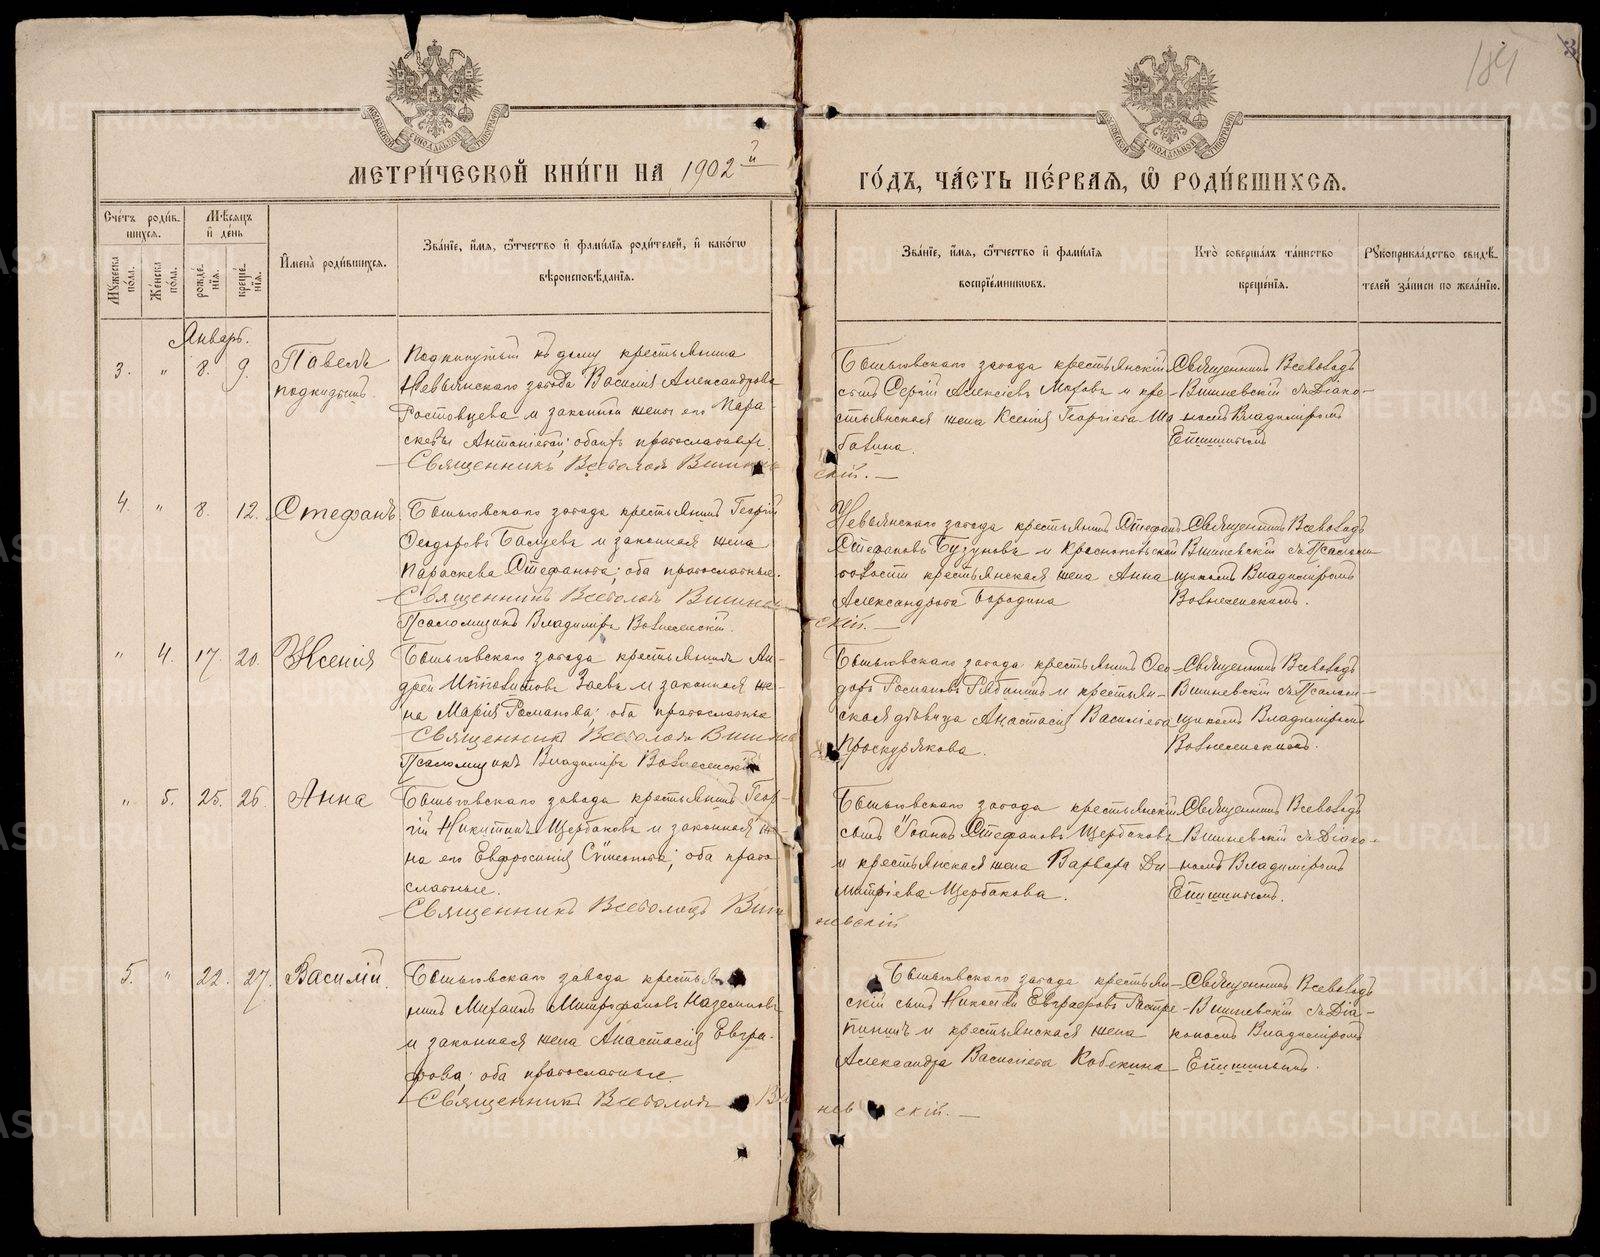 184
МЕТРИ́ЧЕСКОЙ КНИ́ГИ НА 1902й
ГО́ДЪ, ЧА́СТЬ ПЕ́РВАЯ, Ѽ РОДИ́ВШИХСЯ.
Сче́тъ роди́вшихся.
Му́жеска по́ла.
Же́нска по́ла.
Мѣ́сяцъ и҆ день
рожде́нїя.
креще́нїя.
И҆мена̀ роди́вшихся.
Зва́нїе, и҆́мя, ѻ҆́тчество и҆ фами́лїя роди́телей, и҆ како́гѡ
вѣроисповѣ́данїя.
Зва́нїе, и҆́мя, ѻ҆́тчество и҆ фами́лїя
воспрїе́мникѡвъ.
Кто̀ соверша́лъ та́инство
креще́нїя.
Рꙋкоприкла́дство свидѣ́-
телей за́писи по жела́нїю.
Январь.
3. " 8. 9. Павелъ
подкидышъ.
Подкинутый къ дому крестьянина
Невьянскаго завода Василія Александрова
Ростовцева и законной жены его Пара-
скевы Антоніевой; обоихъ православныхъ.
Священникъ Всеволодъ Вишнев
скій.
завода крестьянскій
сынъ Сергій Алексіевъ и кре-
стьянская жена Ксенія Георгіева
Священникъ Всеволодъ
Вишневскій съ Діако-
номъ Владиміромъ
4. " 8. 12. Стефанъ
завода крестьянинъ Георгій
Ѳеодоровъ и законная жена
Параскева Стефанова; оба православные.
Священникъ Всеволодъ Вишнев
скій.
Псаломщикъ Владиміръ Вознесенскій.
Невьянскаго завода крестьянинъ Стефанъ
Стефановъ Бузуновъ и
волости крестьянская жена Анна
Александрова Бородина
Священникъ Всеволодъ
Вишневскій съ Псалом-
щикомъ Владиміромъ
Вознесенскимъ.
" 4. 17. 20. Ксенія
завода крестьянинъ Ан-
дрей Ипполитовъ Заевъ и законная же-
на Марія Романова; оба православные
Священникъ Всеволодъ Вишнев
скій
Псаломщикъ Владиміръ Вознесенскій
завода крестьянинъ Ѳео-
доръ Романовъ Рябининъ и крестьян-
ская дѣвица Анастасія Василіева
Проскурякова.
Священникъ Всеволодъ
Вишневскій съ Псалом-
щикомъ Владиміромъ
Вознесенскимъ.
" 5. 25. 26. Анна
завода крестьянинъ Геор-
гій Никитинъ Щербаковъ и законная же-
на его Евфросинія Сѵмеонова; оба право-
славные.
Священникъ Всеволодъ Виш
невскій
завода крестьянскій
сынъ Іоаннъ Стефановъ Щербаковъ
и крестьянская жена Варвара Ди-
митріева Щербакова.
Священникъ Всеволодъ
Вишневскій съ Діако-
номъ Владиміромъ
5. " 22. 27. Василій.
завода крестья-
нинъ Михаилъ Митрофановъ
и законная жена Анастасія Евгра-
фова; оба православные.
Священникъ Всеволодъ Виш
невскій.
завода крестьян-
скій сынъ Николай Евграфовъ
и крестьянская жена
Александра Василіева Кобекина
Священникъ Всеволодъ
Вишневскій съ Діа-
кономъ Владиміромъ
METRIKI.GASO-URAL.RU